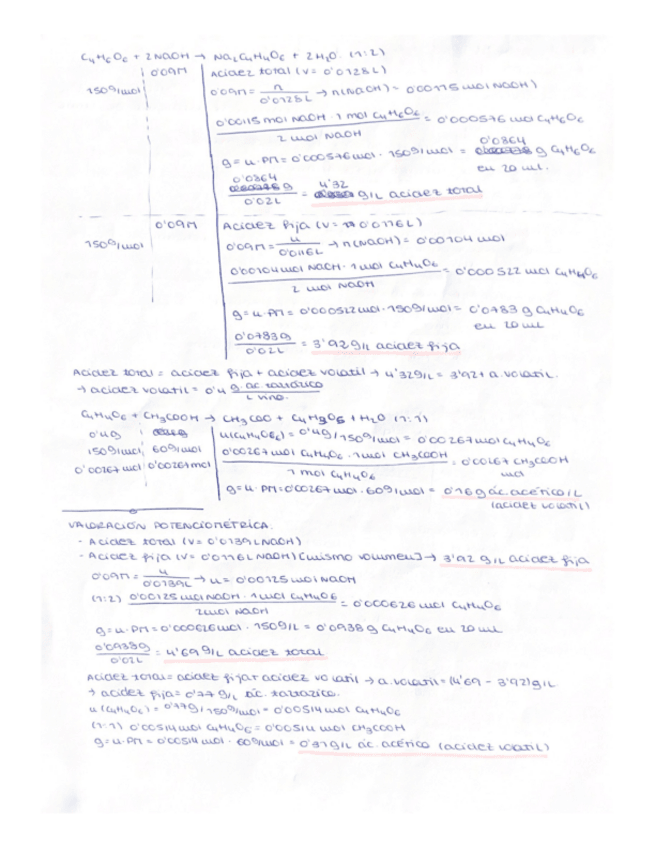 C4H6O6 + 2NaOH → Na2C4H4O6 + 2H2O. (1:2)
0'09M
150g/mol
Acidez total (V = 0'0128L)
0'09M = n / 0'0128L → n(NaOH) = 0'00115 mol NaOH)
0'00115 mol NaOH · 1 mol C4H6O6 / 2 mol NaOH = 0'000576 mol C4H6O6
g = n · PM = 0'000576 mol · 150g/mol = 0'0864 g C4H6O6
en 20 ml.
0'0864 g / 0'02L = 4'32 g/L acidez total
0'09M
150g/mol
Acidez fija (V = 0'0116L)
0'09M = n / 0'0116L → n(NaOH) = 0'00104 mol
0'00104 mol NaOH · 1 mol C4H4O6 / 2 mol NaOH = 0'000522 mol C4H4O6
g = n · PM = 0'000522 mol · 150g/mol = 0'0783 g C4H4O6
en 20 ml
0'0783g / 0'02L = 3'92 g/L acidez fija
Acidez total = acidez fija + acidez volatil → 4'32g/L = 3'92 + a. volatil.
→ acidez volatil = 0'4 g. ac tartárico / L vino.
C4H4O6 + CH3COOH → CH3COO + C4H3O5 + H2O (1:1)
0'4g
150g/mol 60g/mol
0'00267 mol 0'00267 mol
n(C4H4O6) = 0'4g / 150g/mol = 0'00267 mol C4H4O6
0'00267 mol C4H4O6 · 1 mol CH3COOH / 1 mol C4H4O6 = 0'00267 CH3COOH
mol
g = n · PM = 0'00267 mol · 60g/mol = 0'16 g ác. acético/L
(acidez volatil)
VALORACIÓN POTENCIOMÉTRICA.
- Acidez total (V = 0'0139L NaOH)
- Acidez fija (V = 0'0116L NaOH) [mismo volumen] → 3'92 g/L acidez fija
0'09M = n / 0'0139L → n = 0'00125 mol NaOH
(1:2) 0'00125 mol NaOH · 1 mol C4H4O6 / 2 mol NaOH = 0'000626 mol C4H4O6
g = n · PM = 0'000626 mol · 150g/L = 0'0938 g C4H4O6 en 20 ml
0'0938g / 0'02L = 4'69 g/L acidez total
Acidez total = acidez fija + acidez volatil → a. volatil = (4'69 - 3'92) g/L
→ acidez fija = 0'77 g/L ác. tartárico.
n(C4H4O6) = 0'77g / 150g/mol = 0'00514 mol C4H4O6
(1:1) 0'00514 mol C4H4O6 = 0'00514 mol CH3COOH
g = n · PM = 0'00514 mol · 60g/mol = 0'31 g/L ác. acético (acidez volatil)